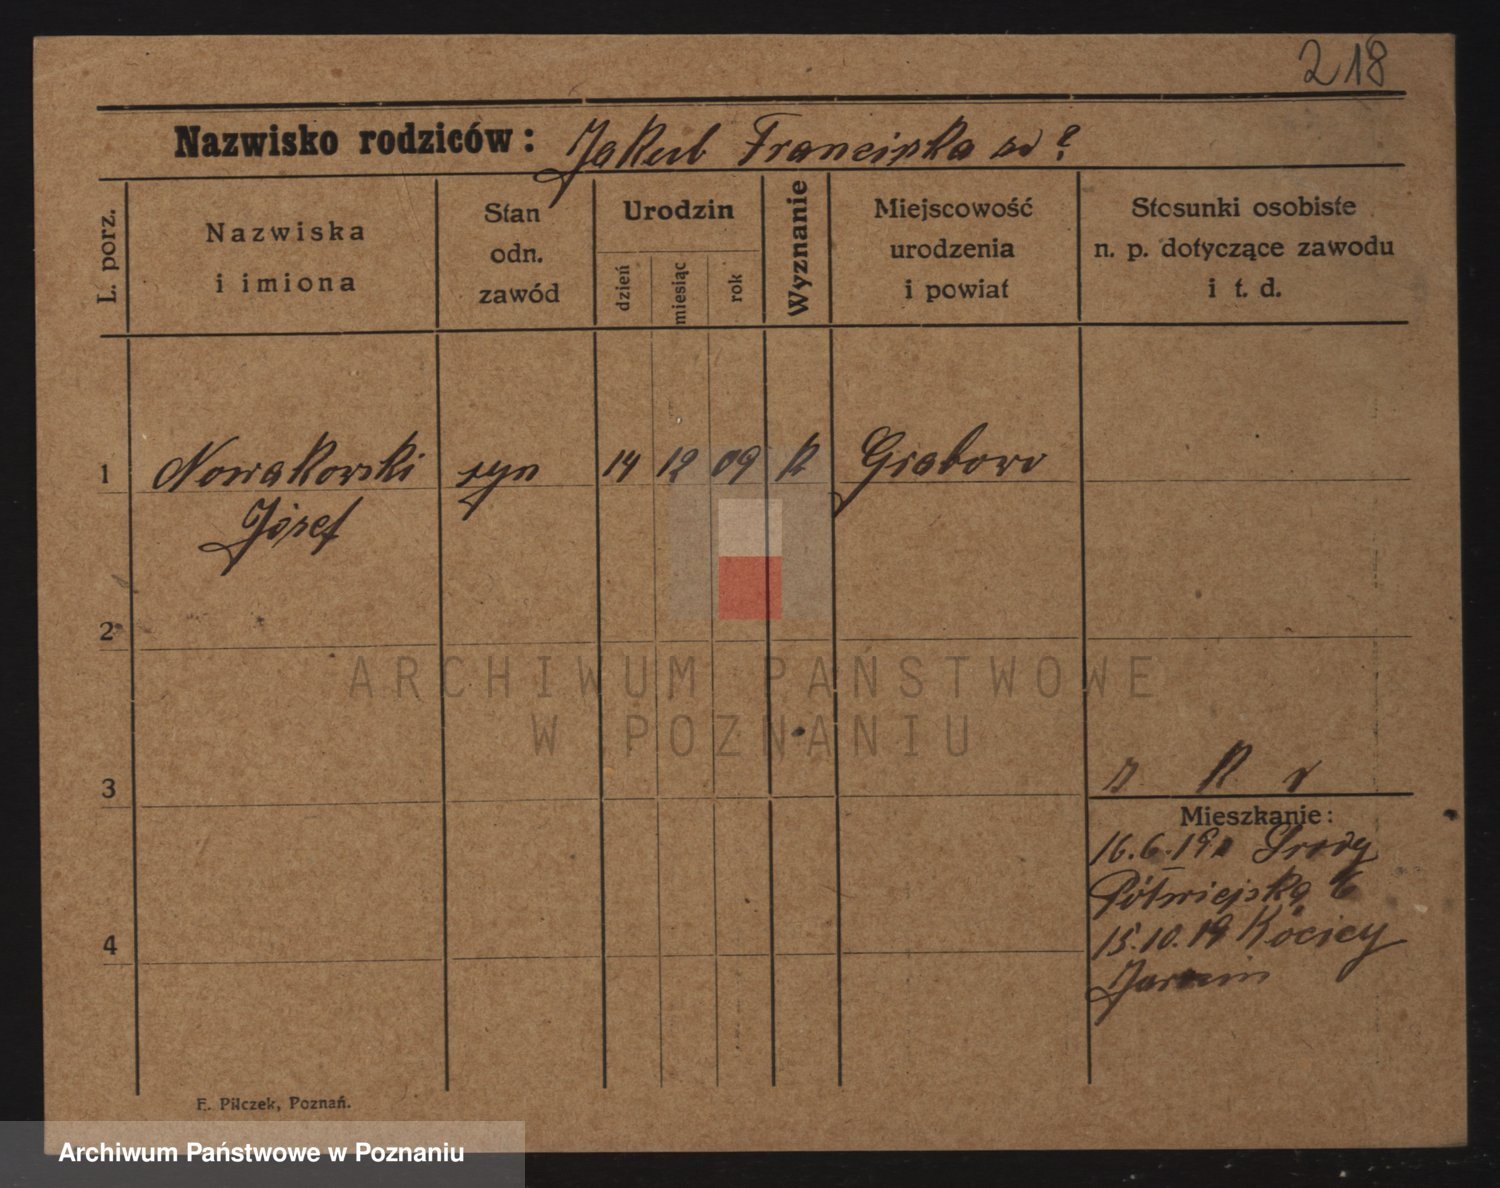 218
Nazwisko rodziców: Jakub Franciszka ?
L. porz.
Nazwiska
i imiona
Stan
odn.
zawód
Urodzin
dzień
miesiąc
rok
Wyznanie
Miejscowość
urodzenia
i powiat
Stosunki osobiste
n. p. dotyczące zawodu
i t. d.
1 Nowakowski syn 14 12 09 K Grabowo
Józef
2
ARCHIWUM PAŃSTWOWE
W POZNANIU
3
Mieszkanie:
16.6.19 Środy
Półwiejska 6
4
15.10.19
E. Pilczek, Poznań.
Archiwum Państwowe w Poznaniu